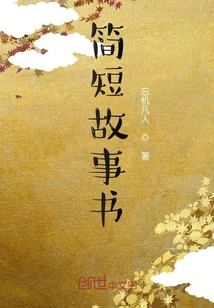 简短故事书
忘机凡人◎著
创世中文网